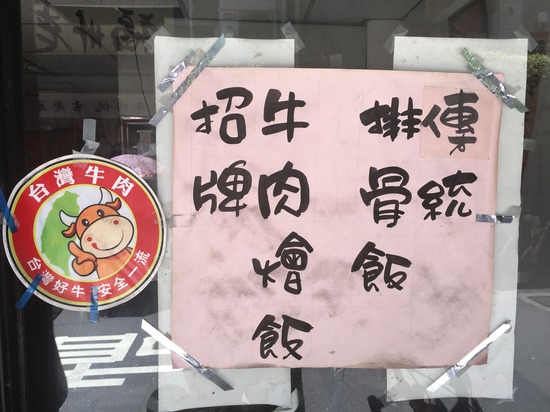 傳統
排骨飯
牛肉燴飯
招牌
台灣牛肉
台灣好牛 安全一流